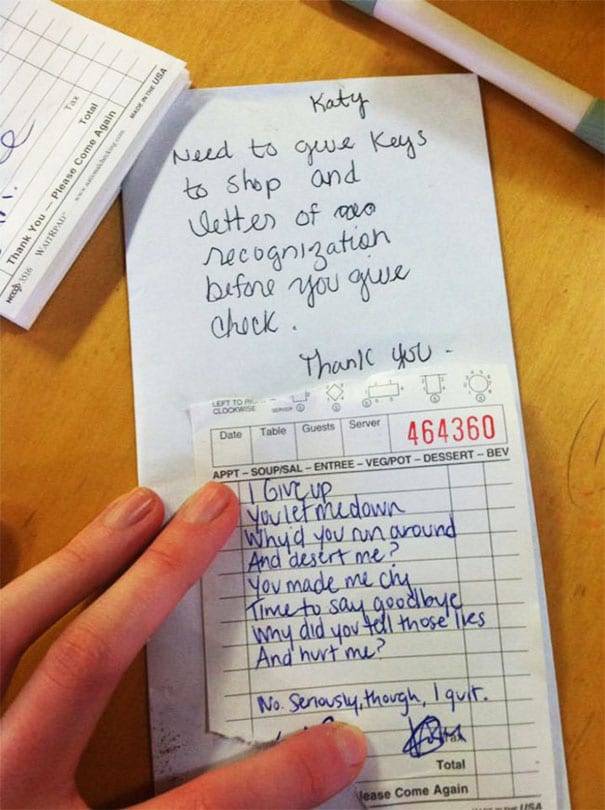 Tax
Total
Thank You — Please Come Again
3516 WAITRPAD
MADE IN THE USA
Katy
Need to give Keys
to shop and
letter of
recognization
before you give
check.
Thank you -
LEFT TO
CLOCKWISE
Date Table Guests Server 464360
APPT – SOUP/SAL – ENTREE – VEG/POT – DESSERT – BEV
I Give up
You let me down
Why'd you run around
And desert me?
You made me cry
Time to say goodbye
Why did you tell those lies
And hurt me?
No. Seriously, though, I quit.
Total
lease Come Again
USA